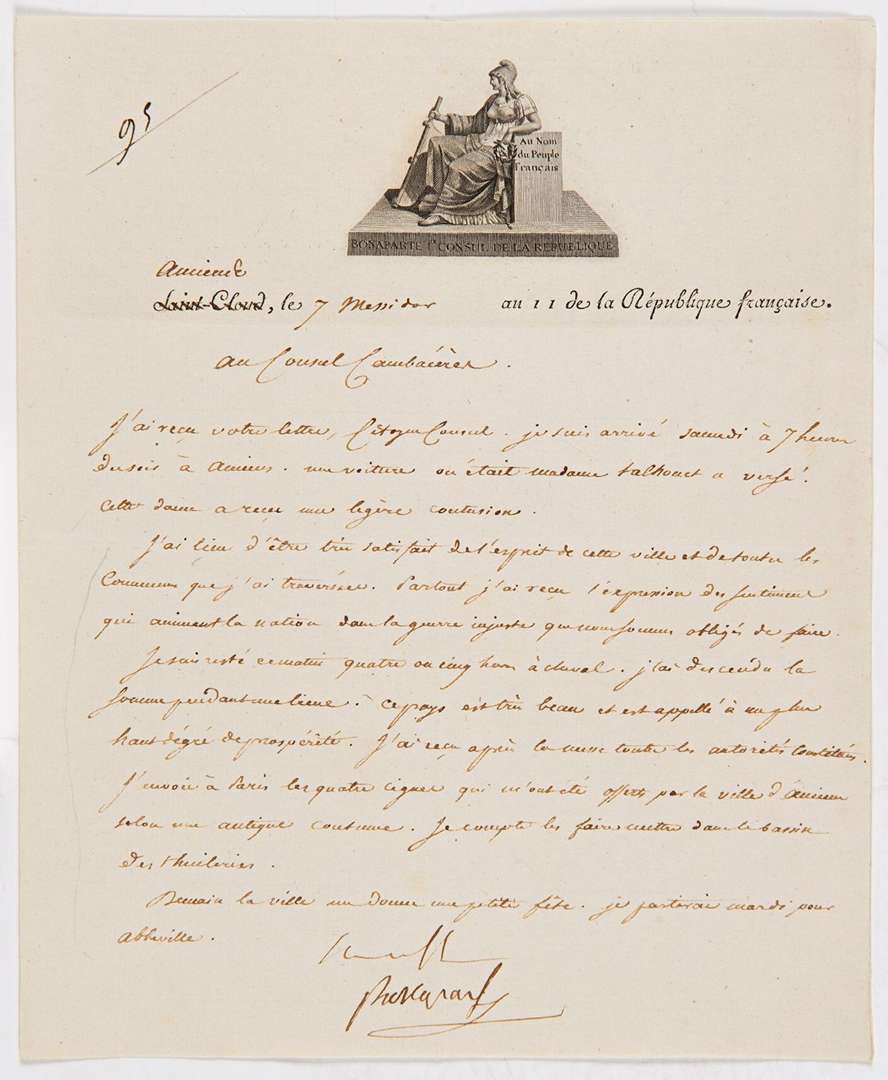 95
Au Nom
du Peuple
Français
BONAPARTE 1er CONSUL DE LA REPUBLIQUE
Amiens
Saint-Cloud, le 7 Messidor an 11 de la République française.
au Consul Cambacérès.
J'ai reçu votre lettre, Citoyen Consul. je suis arrivé samedi à 7 heures
du soir à Amiens. une voiture où était madame talhouet a versé.
Cette dame a reçu une légère contusion.
J'ai lieu d'être très satisfait de l'esprit de cette ville et de toutes les
Communes que j'ai traversées. Partout j'ai reçu l'expression des sentimens
qui animent la nation dans la guerre injuste que nous sommes obligés de faire.
Je suis resté ce matin quatre ou cinq heures à cheval. j'ai descendu la
somme pendant une lieue. Ce pays est très beau et est appellé à un plus
haut dégré de prospérité. J'ai reçu après la messe toutes les autorités Constituées.
J'envoie à Paris les quatre cignes qui m'ont été offerts par la ville d'Amiens
selon une antique coutume. Je compte les faire mettre dans le bassin
des thuileries.
Demain la ville me donne une petite fête. je partirai mardi pour
abbeville.
Bonaparte